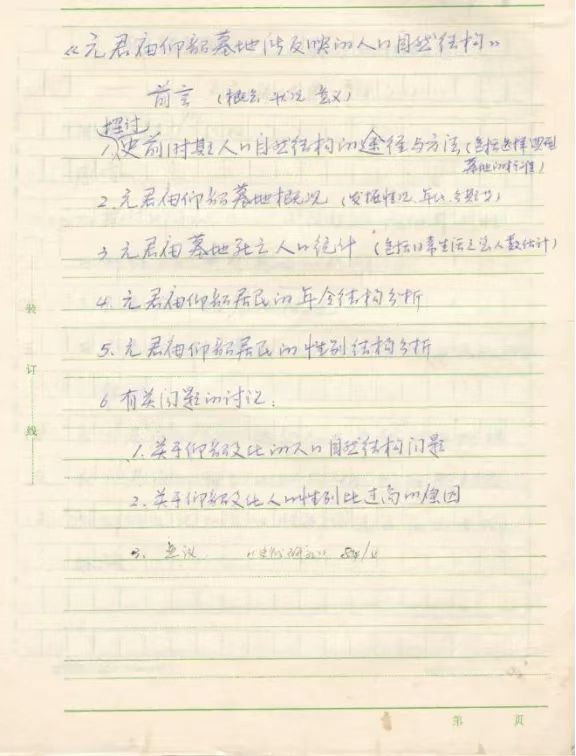 《元君庙仰韶墓地所反映的人口自然结构》
前言 (概念 状况 意义)
探讨
1. 史前时期人口自然结构的途径与方法 (包括选择
墓地的
2. 元君庙仰韶墓地概况 (发掘情况、年代、分期等)
3. 元君庙墓地死亡人口统计 (包括日常生活之总人数估计)
4. 元君庙仰韶居民的年令结构分析
5. 元君庙仰韶居民的性别结构分析
6 有关问题的讨论:
1. 关于仰韶文化的人口自然结构问题
2. 关于仰韶文化人口性别比过高的原因
3.
装
订
线
第 页